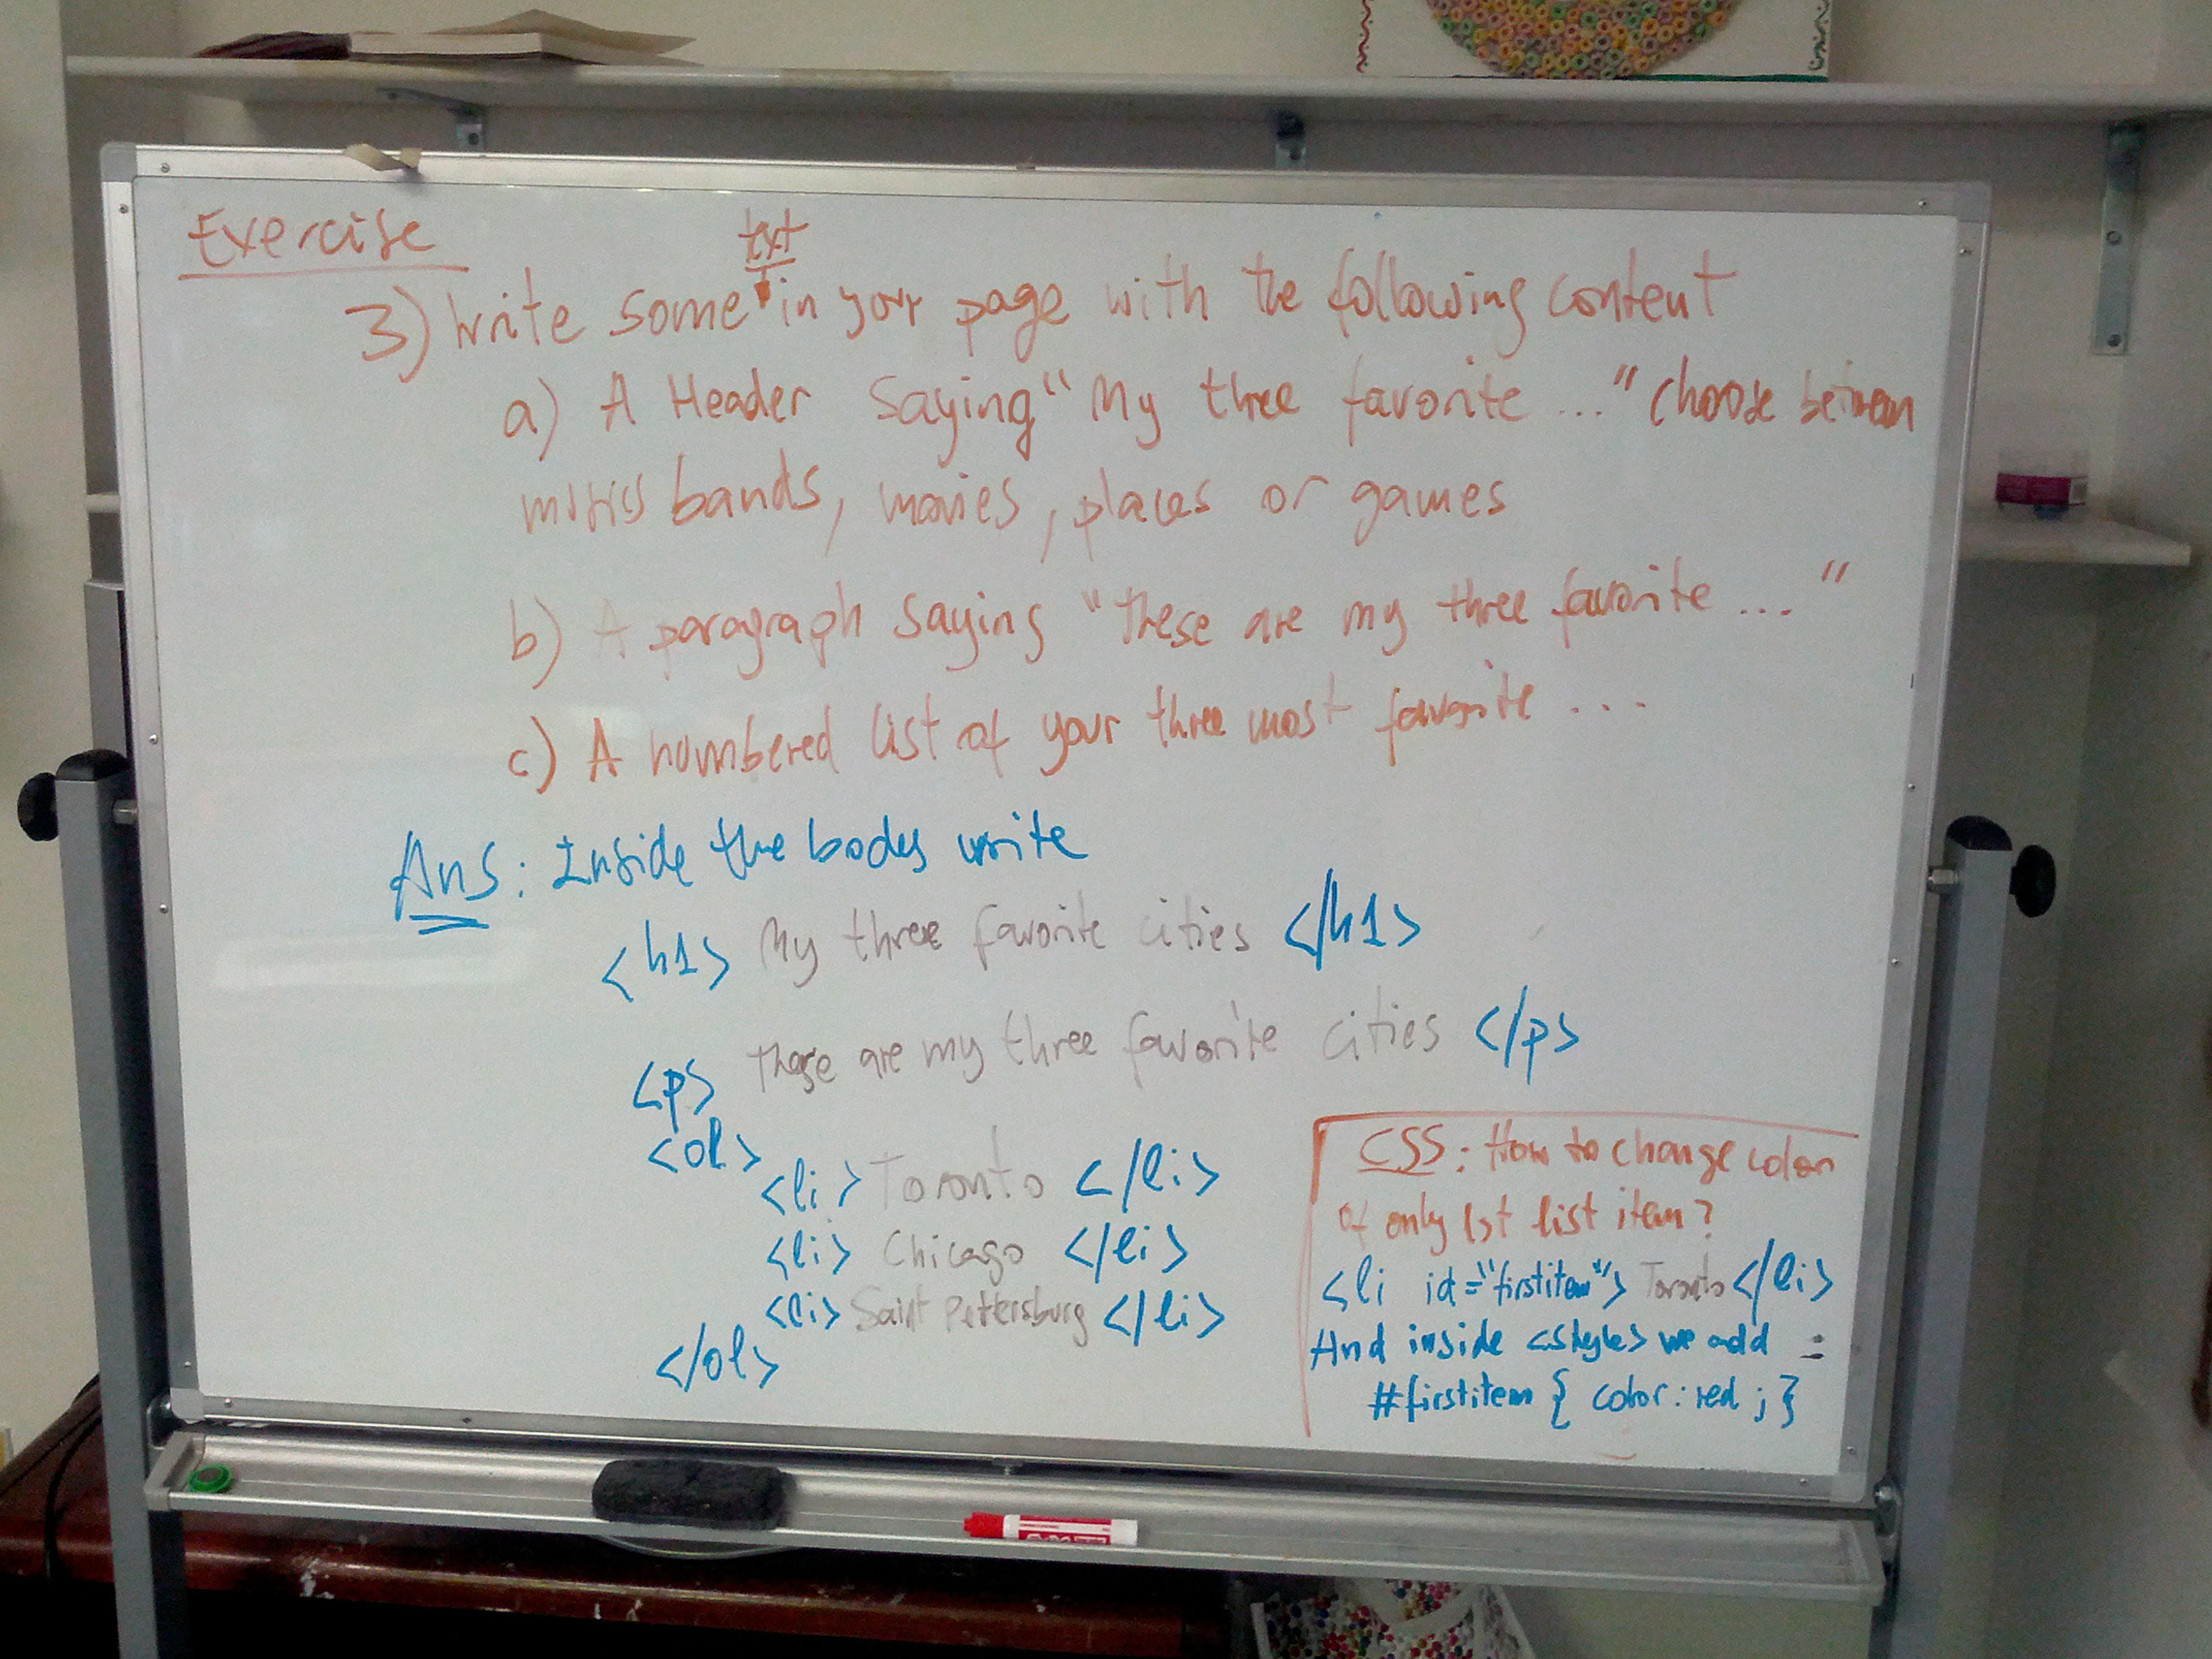 Exercise
text
3) Write some in your page with the following content
a) A Header saying "My three favorite ..." choose between
bands, movies, places or games
b) A paragraph saying "these are my three favorite ..."
c) A numbered list of your three most favorite ...
Ans: Inside the body write
<h1> My three favorite cities </h1>
<p> These are my three favorite cities </p>
<ol>
<li> Toronto </li>
<li> Chicago </li>
<li> Saint Pettersburg </li>
</ol>
CSS: How to change color
of only 1st list item?
<li id="firstitem"> Toronto </li>
And inside <style> we add :
#firstitem { color: red ; }